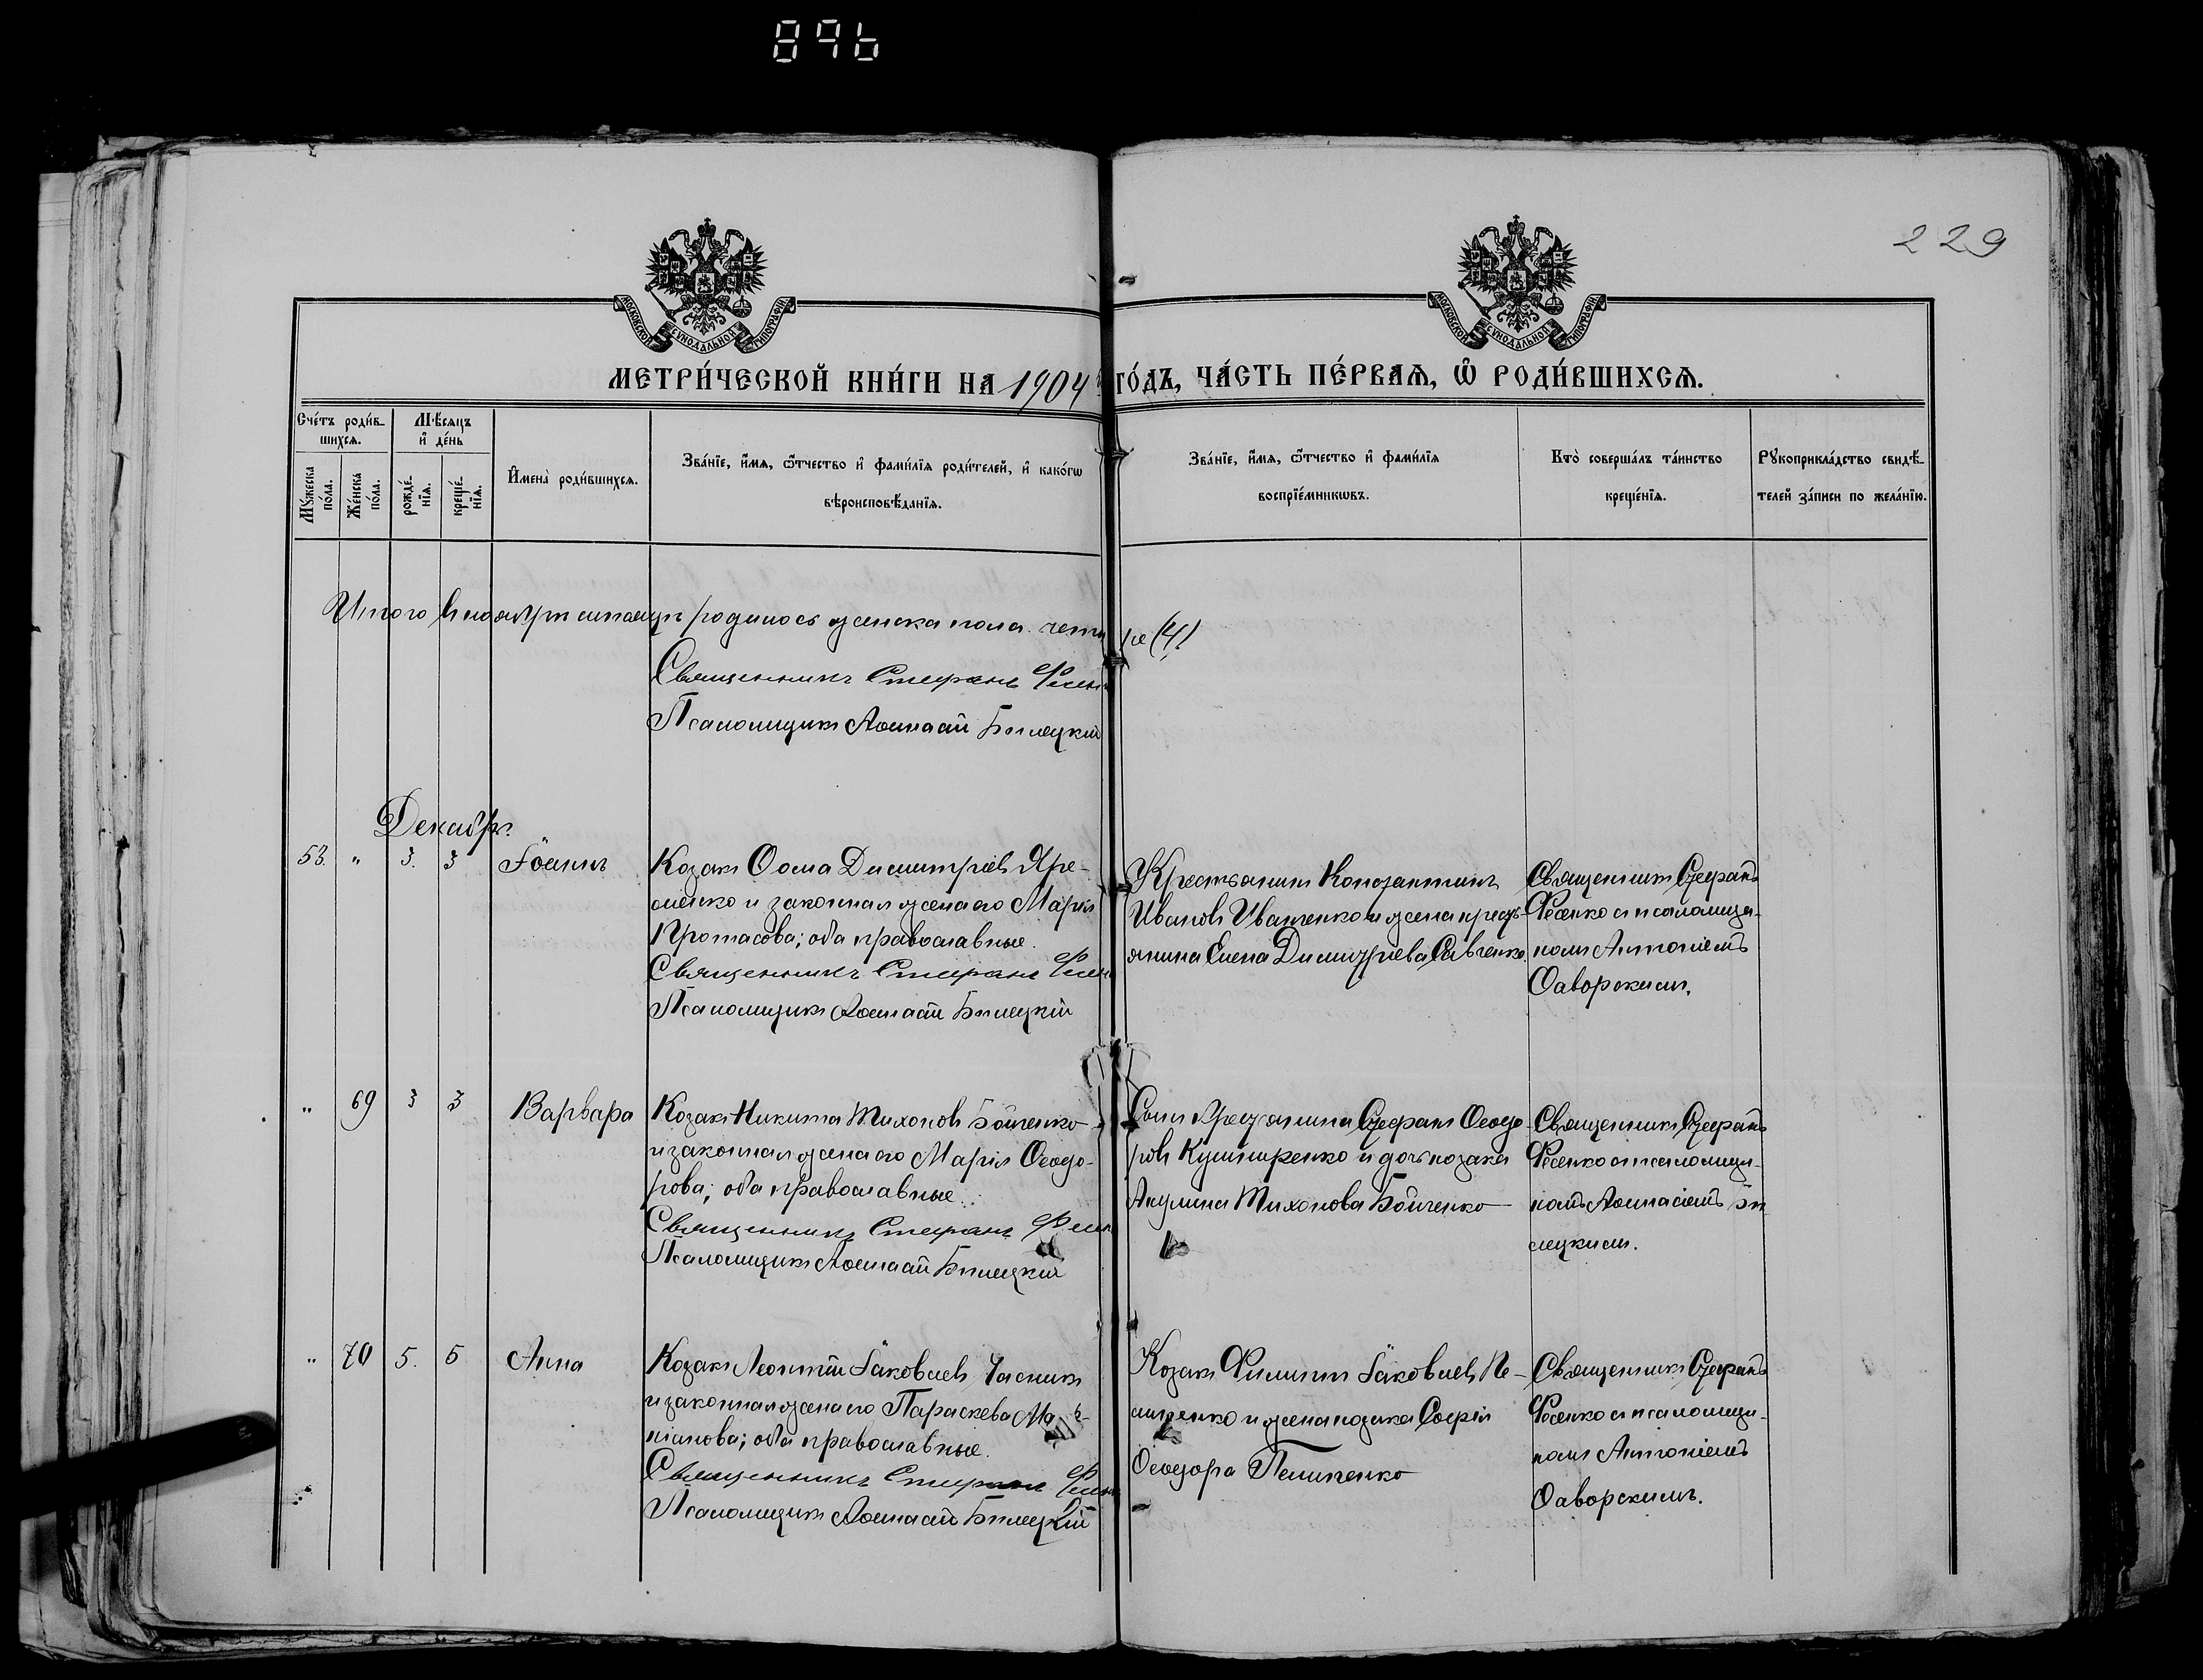 896
229
МОСКОВСКОЙ СѴНОДАЛЬНОЙ ТИПОГРАФІИ
МОСКОВСКОЙ СѴНОДАЛЬНОЙ ТИПОГРАФІИ
МЕТРИ́ЧЕСКОЙ КНИ́ГИ НА 1904 ГО́ДЪ, ЧА́СТЬ ПЕ́РВАѦ, Ѽ РОДИ́ВШИХСѦ.
Сче́тъ роди́в-
шихсѧ.
Мꙋжеска по́ла.
Же́нска по́ла.
Мѣ́сѧцъ
и҆ де́нь
рожде́-
нїѧ.
креще́-
нїѧ.
И҆мена̀ роди́вшихсѧ.
Зва́нїе, и҆́мѧ, ѻ҆́тчество и҆ фами́лїѧ роди́телей, и҆ како́гѡ
вѣроисповѣ́данїѧ.
Зва́нїе, и҆́мѧ, ѻ҆́тчество и҆ фами́лїѧ
воспрїе́мникѡвъ.
Кто̀ соверша́лъ та́инство
креще́нїѧ.
Рꙋкоприкла́дство свидѣ́-
телей за́писи по жела́нїю.
Итого въ ноябрѣ мѣсяцѣ родилось женска пола четыре (4)
Священникъ Стефанъ
Псаломщикъ Аѳанасій Билецкій
Декабрь
53. " 3. 3 Іоаннъ
Козакъ Ѳома Димитріевъ Яре-
менко и законная жена его Марія
Протасова; оба православные.
Священникъ Стефанъ
Псаломщикъ Аѳанасій Билецкій
Крестьянинъ Константинъ
Ивановъ Иващенко и жена кресть-
янина Елена Димитріева Савченко.
Священникъ Стефанъ
Фесенко съ псаломщи-
комъ Антоніемъ
Ѳаворскимъ.
" 69 3 3 Варвара
Козакъ Никита Тихоновъ Бойченко
и законная жена его Марія Ѳеодо-
рова; оба православные.
Священникъ Стефанъ
Псаломщикъ Аѳанасій Билецкій
Сынъ крестьянина Стефанъ Ѳеодо-
ровъ Кушниренко и дочь козака
Акулина Тихонова Бойченко
Священникъ Стефанъ
Фесенко съ псаломщи-
комъ Аѳанасіемъ Би
лецкимъ.
" 70 5. 5 Анна
Козакъ Леонтій Іаковлевъ Часникъ
и законная жена его Параскева
оба православные.
Священникъ Стефанъ
Псаломщикъ Аѳанасій Билецкій
Козакъ Филиппъ Іаковлевъ Пе-
и жена козака Софія
Ѳеодора
Священникъ Стефанъ
Фесенко съ псаломщи-
комъ Антоніемъ
Ѳаворскимъ.